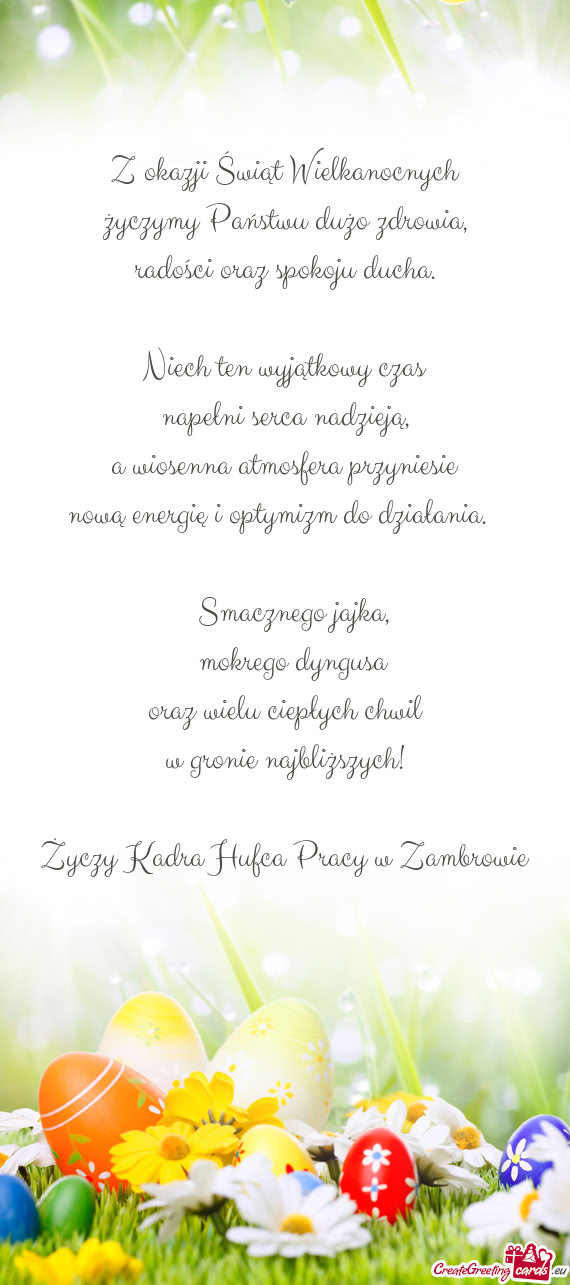 Z okazji Świąt Wielkanocnych
życzymy Państwu dużo zdrowia,
radości oraz spokoju ducha.
Niech ten wyjątkowy czas
napełni serca nadzieją,
a wiosenna atmosfera przyniesie
nową energię i optymizm do działania.
Smacznego jajka,
mokrego dyngusa
oraz wielu ciepłych chwil
w gronie najbliższych!
Życzy Kadra Hufca Pracy w Zambrowie
CreateGreeting cards.eu